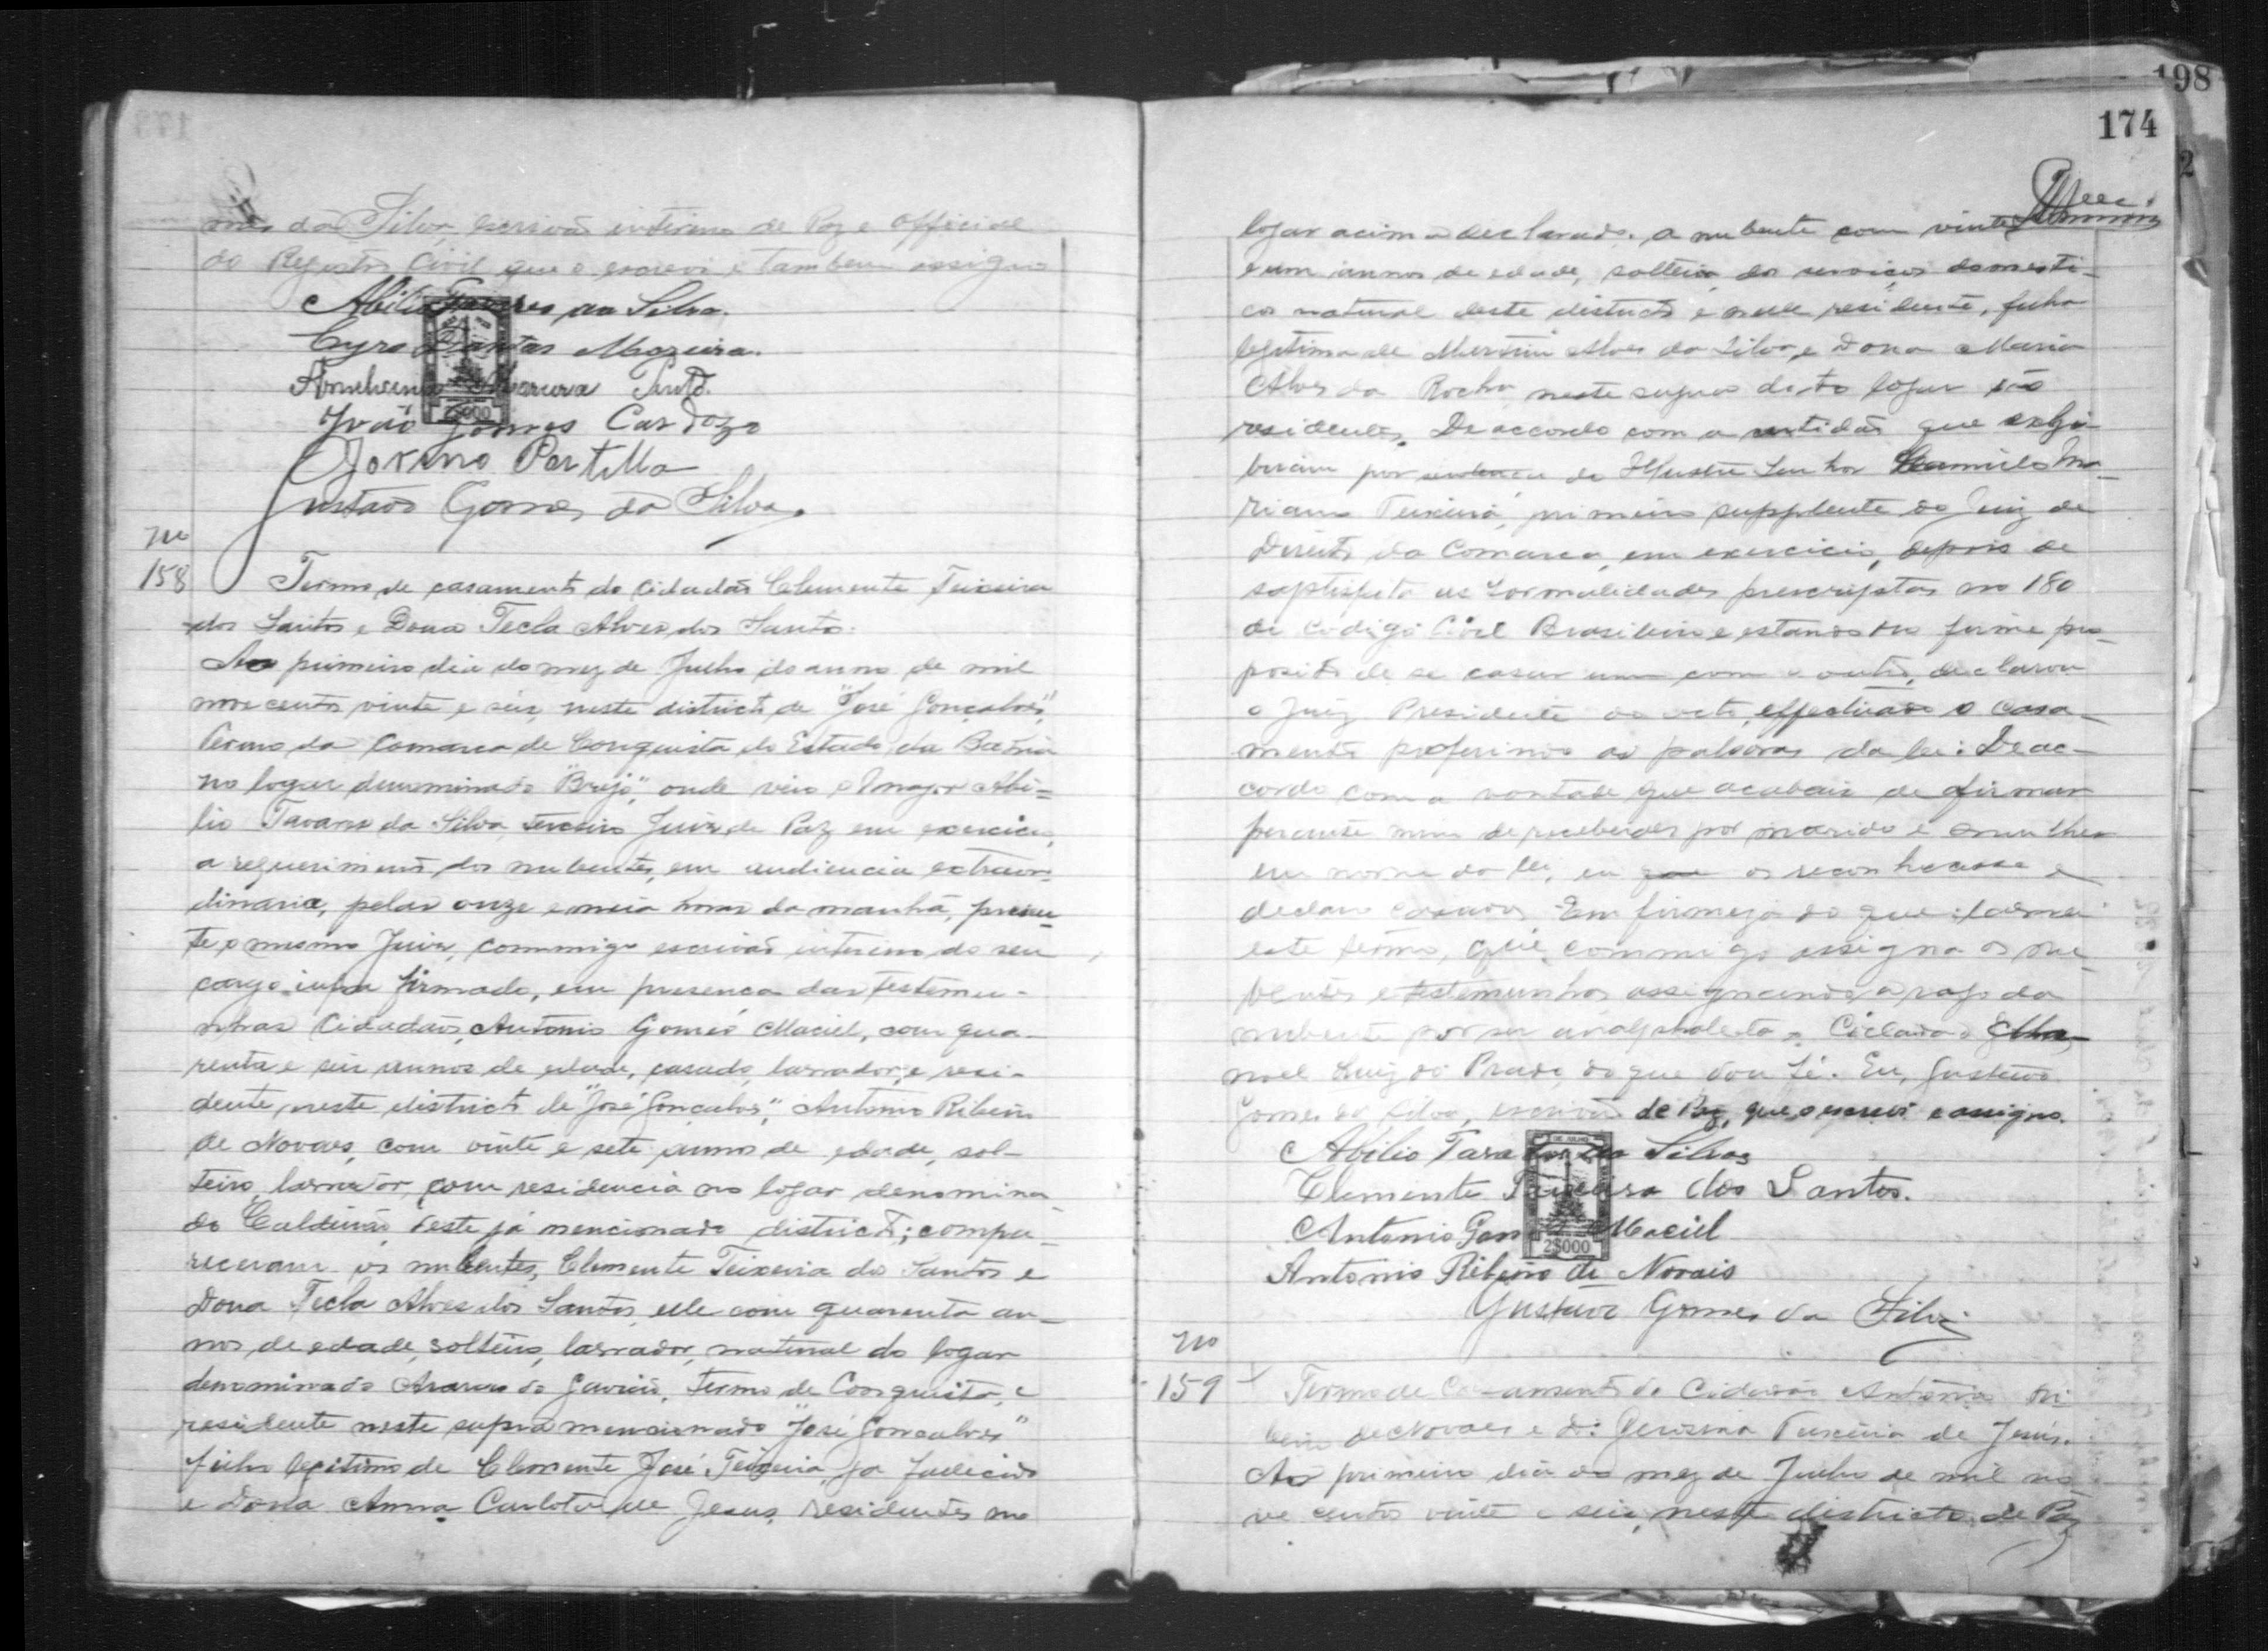 mes da Silva, escrivão interino de Paz e Official
do Registro Civil que o escrevi e tambem assigno
Abilio Tavares da Silva.
Cyro Dantas
Pinto.
João Gomes Cardozo
Jovino Portella
Gustavo Gomes da Silva.
No
158
Termo de casamento do cidadão Clemente Teixeira
dos Santos e Dona Tecla Alves dos Santos.
Ao primeiro dia do mez de Julho do anno de mil
nove centos vinte e seis, neste districto de "José Gonçalves",
Termo da Comarca de Conquista do Estado da Bahia
no logar denominado "Brejo", onde veio o Major Abi=
lio Tavares da Silva, terceiro Juiz de Paz em exercicio,
a requerimento dos nubentes, em audiencia extraor-
dinaria, pelas onze e meia horas da manhã, presen-
te o mesmo Juiz, commigo escrivão interino do seu
cargo infra firmado, em presença das testemu-
nhas Cidadãos, Antonio Gomes Maciel, com qua-
renta e seis annos de edade, casado, lavrador, e resi-
dente neste districto de "José Gonçalves", Antonio Ribeiro
de Novaes, com vinte e sete annos de edade, sol-
teiro, lavrador, com residencia no logar denomina-
do Caldeirão, deste já mencionado districto; compa-
receram os nubentes, Clemente Teixeira dos Santos e
Dona Tecla Alves dos Santos, elle com quarenta an-
nos de edade, solteiro, lavrador, natural do logar
denominado do termo de Conquista, e
residente neste supra mencionado "José Gonçalves"
filho legitimo de Clemente José Teixeira, já fallecido
e Dona Anna Carlota de Jesus, residentes no
198
174
2
logar acima declarado. a nubente com vinte
e um annos de edade, solteira, dos serviços domesti-
cos natural deste districto e nelle residente, filha
legitima de Alves da Silva, e Dona Maria
Alves da Rocha, neste dito logar são
residentes. De accordo com a certidão que exhi-
biram por do Illustre Senhor Ma-
riano Teixeira, primeiro supplente do Juiz de
Direito da Comarca, em exercicio, depois de
as formalidades prescriptas no 180
do Codigo Civil Brasileiro e estando no firme pro-
posito de se casar um com o outro, declarou
o Juiz Presidente do acto, effectuado o casa-
mento proferindo as palavras da lei: De ac-
cordo com a vontade que acabais de afirmar
perante mim de receberdes por marido e mulher
em nome da lei, eu os e
declaro casados. Em firmeza do que lavrei
este termo, que, commigo assigna os nu-
bentes e testemunhas assignando a rogo da
nubente por ser analphabeta o Cidadão Ma-
noel Luiz do Prado, do que dou fé. Eu, Gustavo
Gomes da Silva, escrivão de Paz, que o escrevi e assigno.
Abilio Tavares da Silva
Clemente Teixeira dos Santos.
Antonio Gomes Maciel
Antonio Ribeiro de Novais
Gustavo Gomes da Silva
2$000
No
159
Termo de Casamento do Cidadão Antonio Ri
beiro de Novaes e D. Teixeira de Jesús.
Ao primeiro dia do mez de Julho de mil no
ve centos vinte e seis, neste districto de Paz